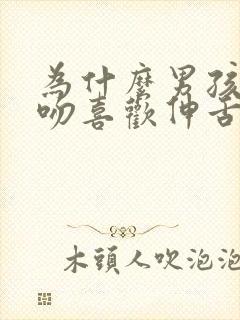 为什麼男孩
吻喜歡伸舌
木頭人吹泡泡